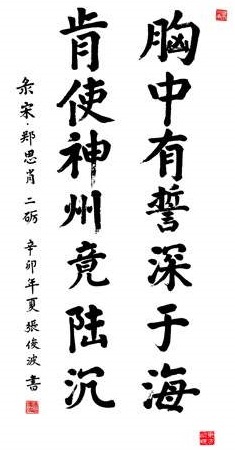 胸中有誓深于海
肯使神州竟陆沉
录宋·郑思肖二砺 辛卯年夏張俊波書